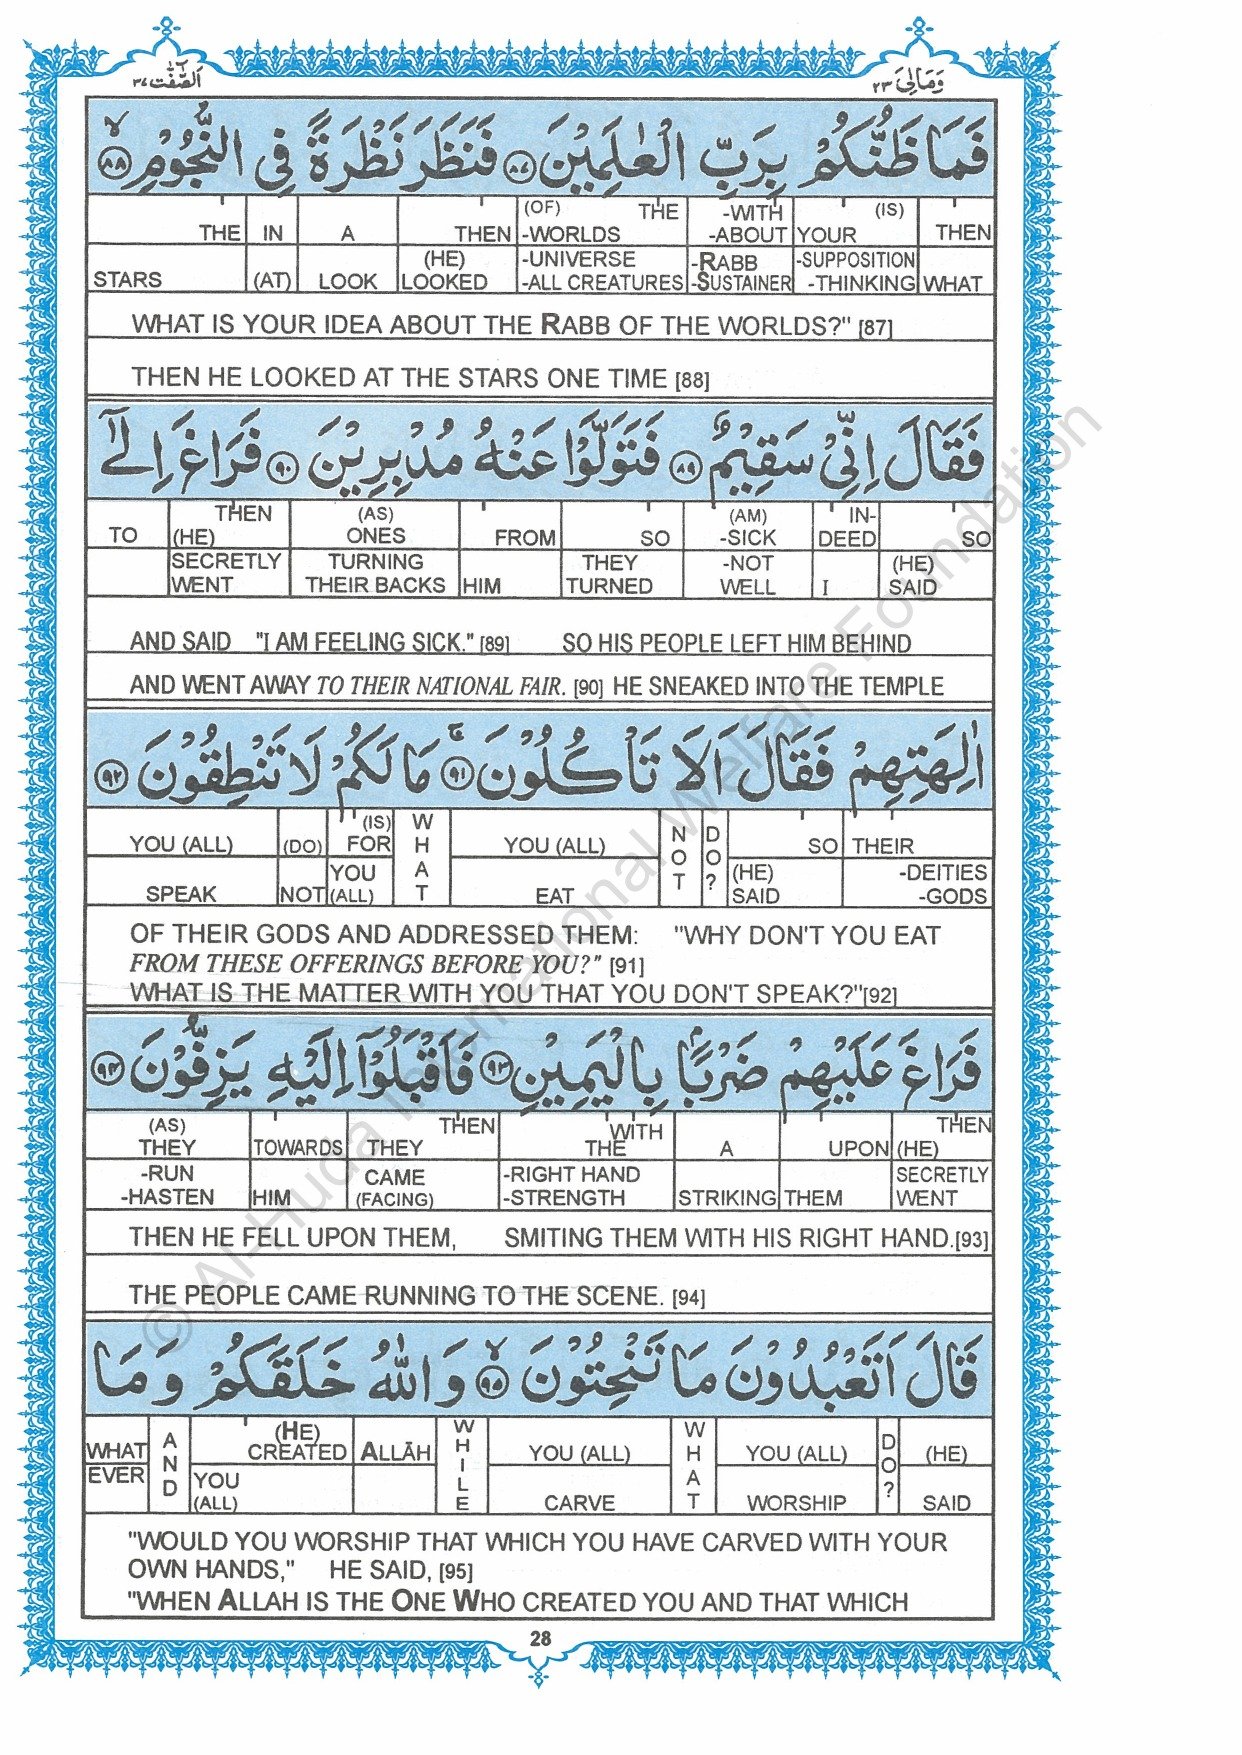 وَمَالِيَ ٢٣
اَلصّٰٓفّٰت ٣٧
فَمَا ظَنُّكُمْ بِرَبِّ الْعٰلَمِيْنَ ٨٧ فَنَظَرَ نَظْرَةً فِي النُّجُوْمِ ٨٨
THE IN A THEN (OF) THE -WORLDS -WITH -ABOUT (IS) YOUR THEN
STARS (AT) LOOK (HE) LOOKED -UNIVERSE -ALL CREATURES -RABB -SUSTAINER -SUPPOSITION -THINKING WHAT
WHAT IS YOUR IDEA ABOUT THE RABB OF THE WORLDS?" [87]
THEN HE LOOKED AT THE STARS ONE TIME [88]
فَقَالَ اِنِّيْ سَقِيْمٌ ٨٩ فَتَوَلَّوْا عَنْهُ مُدْبِرِيْنَ ٩٠ فَرَاغَ اِلٰٓى
TO THEN (HE) (AS) ONES FROM SO (AM) -SICK IN-DEED SO
SECRETLY WENT TURNING THEIR BACKS HIM THEY TURNED -NOT WELL I (HE) SAID
AND SAID "I AM FEELING SICK." [89] SO HIS PEOPLE LEFT HIM BEHIND
AND WENT AWAY TO THEIR NATIONAL FAIR. [90] HE SNEAKED INTO THE TEMPLE
اٰلِهَتِهِمْ فَقَالَ اَلَا تَاْكُلُوْنَ ٩١ مَا لَكُمْ لَا تَنْطِقُوْنَ ٩٢
YOU (ALL) (DO) (IS) FOR WHAT YOU (ALL) NOT DO? SO THEIR
SPEAK NOT YOU (ALL) EAT (HE) SAID -DEITIES -GODS
OF THEIR GODS AND ADDRESSED THEM: "WHY DON'T YOU EAT
FROM THESE OFFERINGS BEFORE YOU?" [91]
WHAT IS THE MATTER WITH YOU THAT YOU DON'T SPEAK?"[92]
فَرَاغَ عَلَيْهِمْ ضَرْبًۢا بِالْيَمِيْنِ ٩٣ فَاَقْبَلُوْٓا اِلَيْهِ يَزِفُّوْنَ ٩٤
(AS) THEY TOWARDS THEN THEY WITH THE A UPON THEN (HE)
-RUN -HASTEN HIM CAME (FACING) -RIGHT HAND -STRENGTH STRIKING THEM SECRETLY WENT
THEN HE FELL UPON THEM, SMITING THEM WITH HIS RIGHT HAND.[93]
THE PEOPLE CAME RUNNING TO THE SCENE. [94]
قَالَ اَتَعْبُدُوْنَ مَا تَنْحِتُوْنَ ٩٥ وَاللّٰهُ خَلَقَكُمْ وَمَا
WHAT AND (HE) CREATED ALLĀH WHILE YOU (ALL) WHAT YOU (ALL) DO? (HE)
EVER YOU (ALL) CARVE WORSHIP SAID
"WOULD YOU WORSHIP THAT WHICH YOU HAVE CARVED WITH YOUR
OWN HANDS," HE SAID, [95]
"WHEN ALLAH IS THE ONE WHO CREATED YOU AND THAT WHICH
28
© Al-Huda International Welfare Foundation